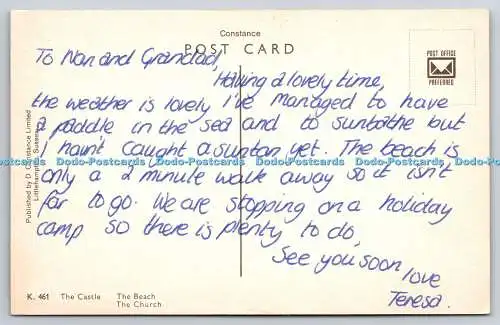 Constance
POST CARD
POST OFFICE
PREFERRED
To Nan and Grandad,
Having a lovely time,
the weather is lovely I've managed to have
a paddle in the sea and to sunbathe but
I han't caught a suntan yet. The beach is
Dodo-Postcards Dodo-Postcards Dodo-Postcards Dodo-Postcards Dodo-Postcards
only a 2 minute walk away so it isn't
far to go. We are stopping on a holiday
camp so there is plenty to do,
See you soon
love
Teresa.
Published by D. Constance Limited
Littlehampton, Sussex
K. 461 The Castle The Beach
The Church